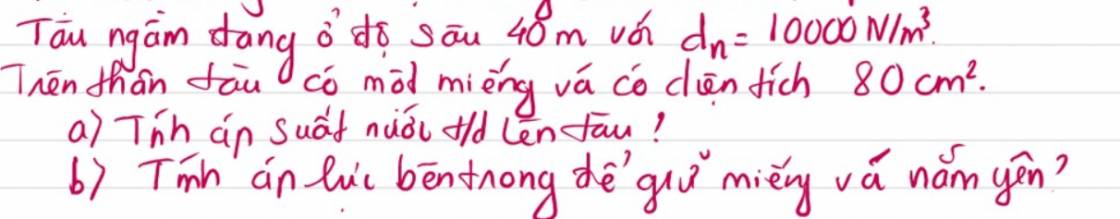 Tàu ngầm đang ở độ sâu 48m với dn = 10000 N/m³.
Trên thân tàu có một miếng vá có diện tích 80 cm².
a) Tính áp suất nước t/d lên tàu !
b) Tính áp lực bên trong để giữ miếng vá nằm yên ?